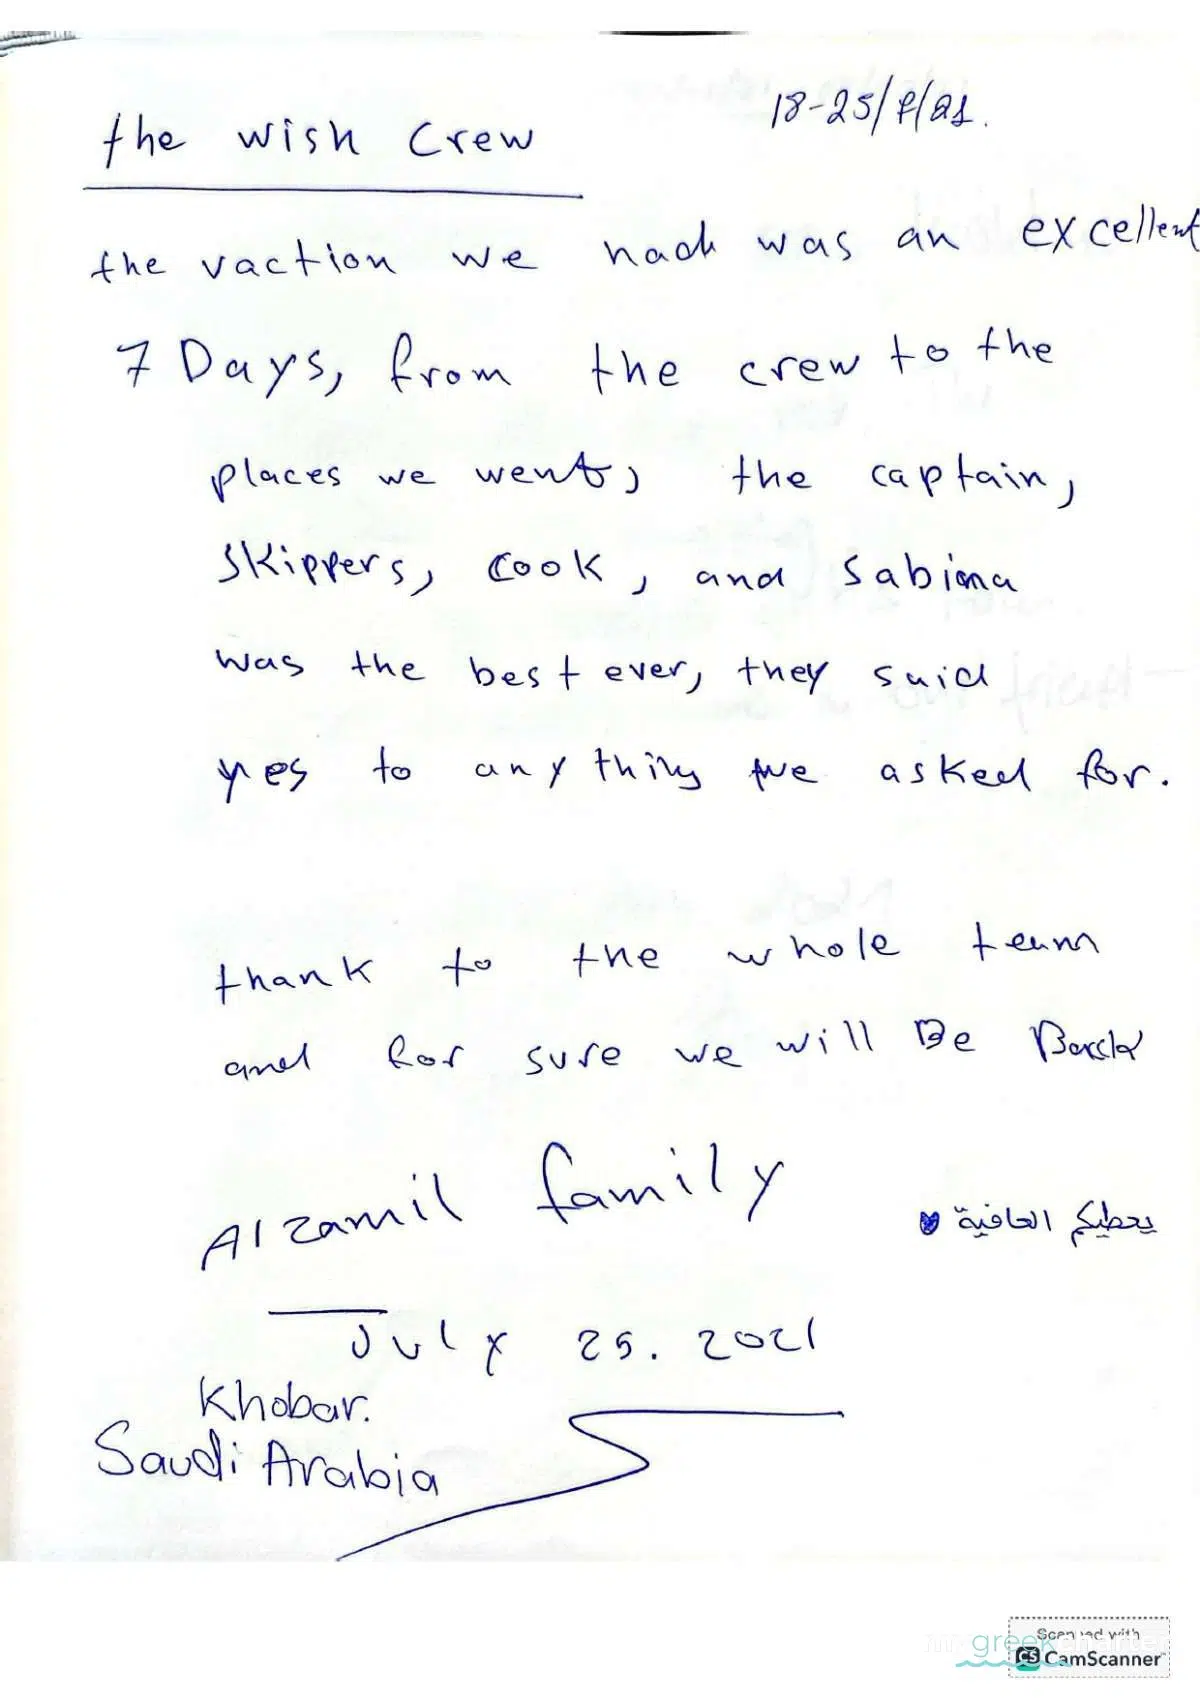 18-25/7/21.
the wish crew
the vaction we had was an excellent
7 Days, from the crew to the
places we went, the captain,
skippers, cook, and sabina
was the best ever, they said
yes to anything we asked for.
thank to the whole team
and for sure we will Be Back
Alzamil family
يعطيكم العافية
July 25. 2021
Khobar.
Saudi Arabia
Scanned with
my greek charter
CS CamScanner